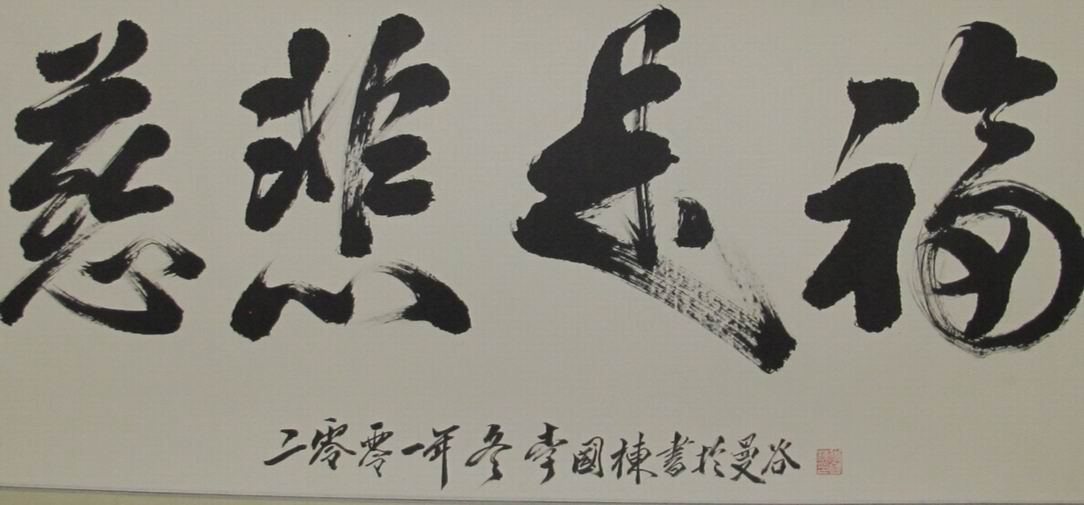 慈悲長福
二零零一年冬李國棟書於曼谷